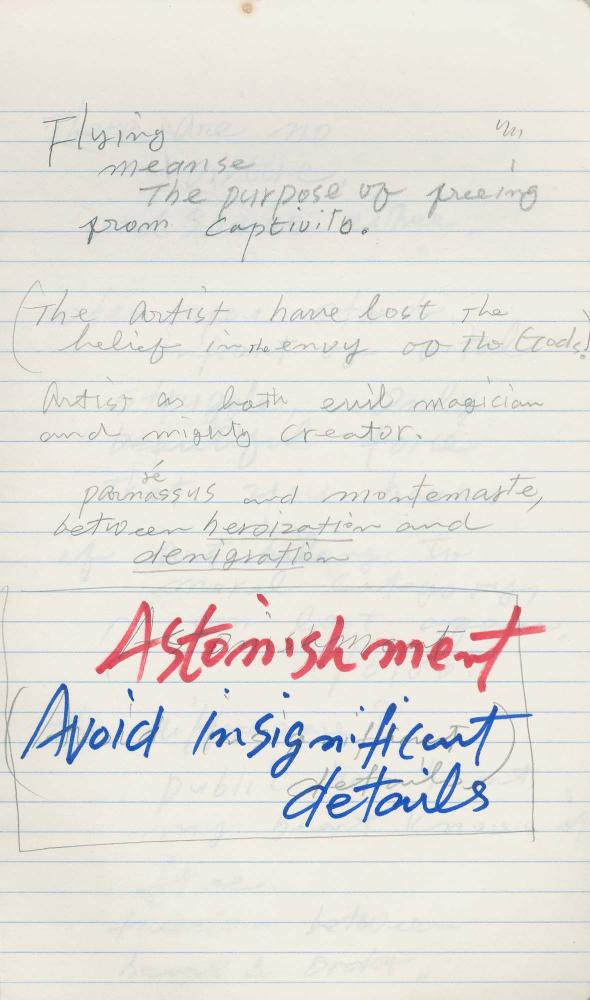 Flying
meanse
The purpose of freeing
from Captivity.
(The Artist have lost The
belief in the envy of The Gods!)
Artist as both evil magician
and mighty Creator.
sé
parnassus and montemarte,
between heroization and
denigration
Astonishment
Avoid insignificant
details